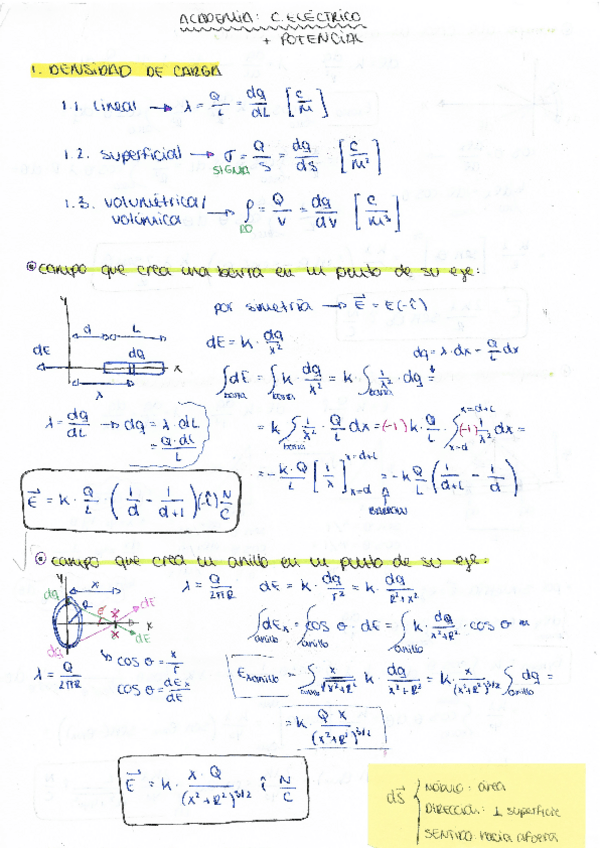 ACADEMIA: C. ELÉCTRICO
+ POTENCIAL
1. DENSIDAD DE CARGA
1.1. lineal → λ = Q/L = dq/dL [C/m]
1.2. superficial → σ = Q/S = dq/ds [C/m²]
SIGMA
1.3. volumétrica/ volúmica → ρ = Q/V = dq/dV [C/m³]
RO
campo que crea una barra en un punto de su eje:
por simetría → E⃗ = E(-î)
y
d L
dE dq x
dE = k · dq/x²
dq = λ · dx = Q/L dx
∫barra dE = ∫barra k · dq/x² = k ∫barra 1/x² · dq =
λ = dq/dL → dq = λ · dL
= Q · dL/L
= k ∫barra 1/x² · Q/L dx = (-1) k · Q/L · ∫x=d x=d+L (-1) 1/x² dx =
= - k·Q/L [1/x] x=d x=d+L = - k Q/L (1/d+L - 1/d)
BARROW
E⃗ = k · Q/L · (1/d - 1/d+L) (-î) N/C
campo que crea un anillo en un punto de su eje:
y
dq R x dE
θ x
dq dE
λ = Q/2πR dE = k · dq/r² = k · dq/R²+x²
∫anillo dEx = ∫anillo cos θ · dE = ∫anillo k · dq/x²+R² · cos θ =
cos θ = x/r
λ = Q/2πR
cos θ = dEx/dE
Exanillo = ∫anillo x/√x²+R² k · dq/x²+R² = k · x/(x²+R²)^3/2 ∫anillo dq =
= k Q x/(x²+R²)^3/2
E⃗ = k · x · Q/(x²+R²)^3/2 î N/C
dS⃗ { MÓDULO: área
DIRECCIÓN: ⊥ superficie
SENTIDO hacia afuera